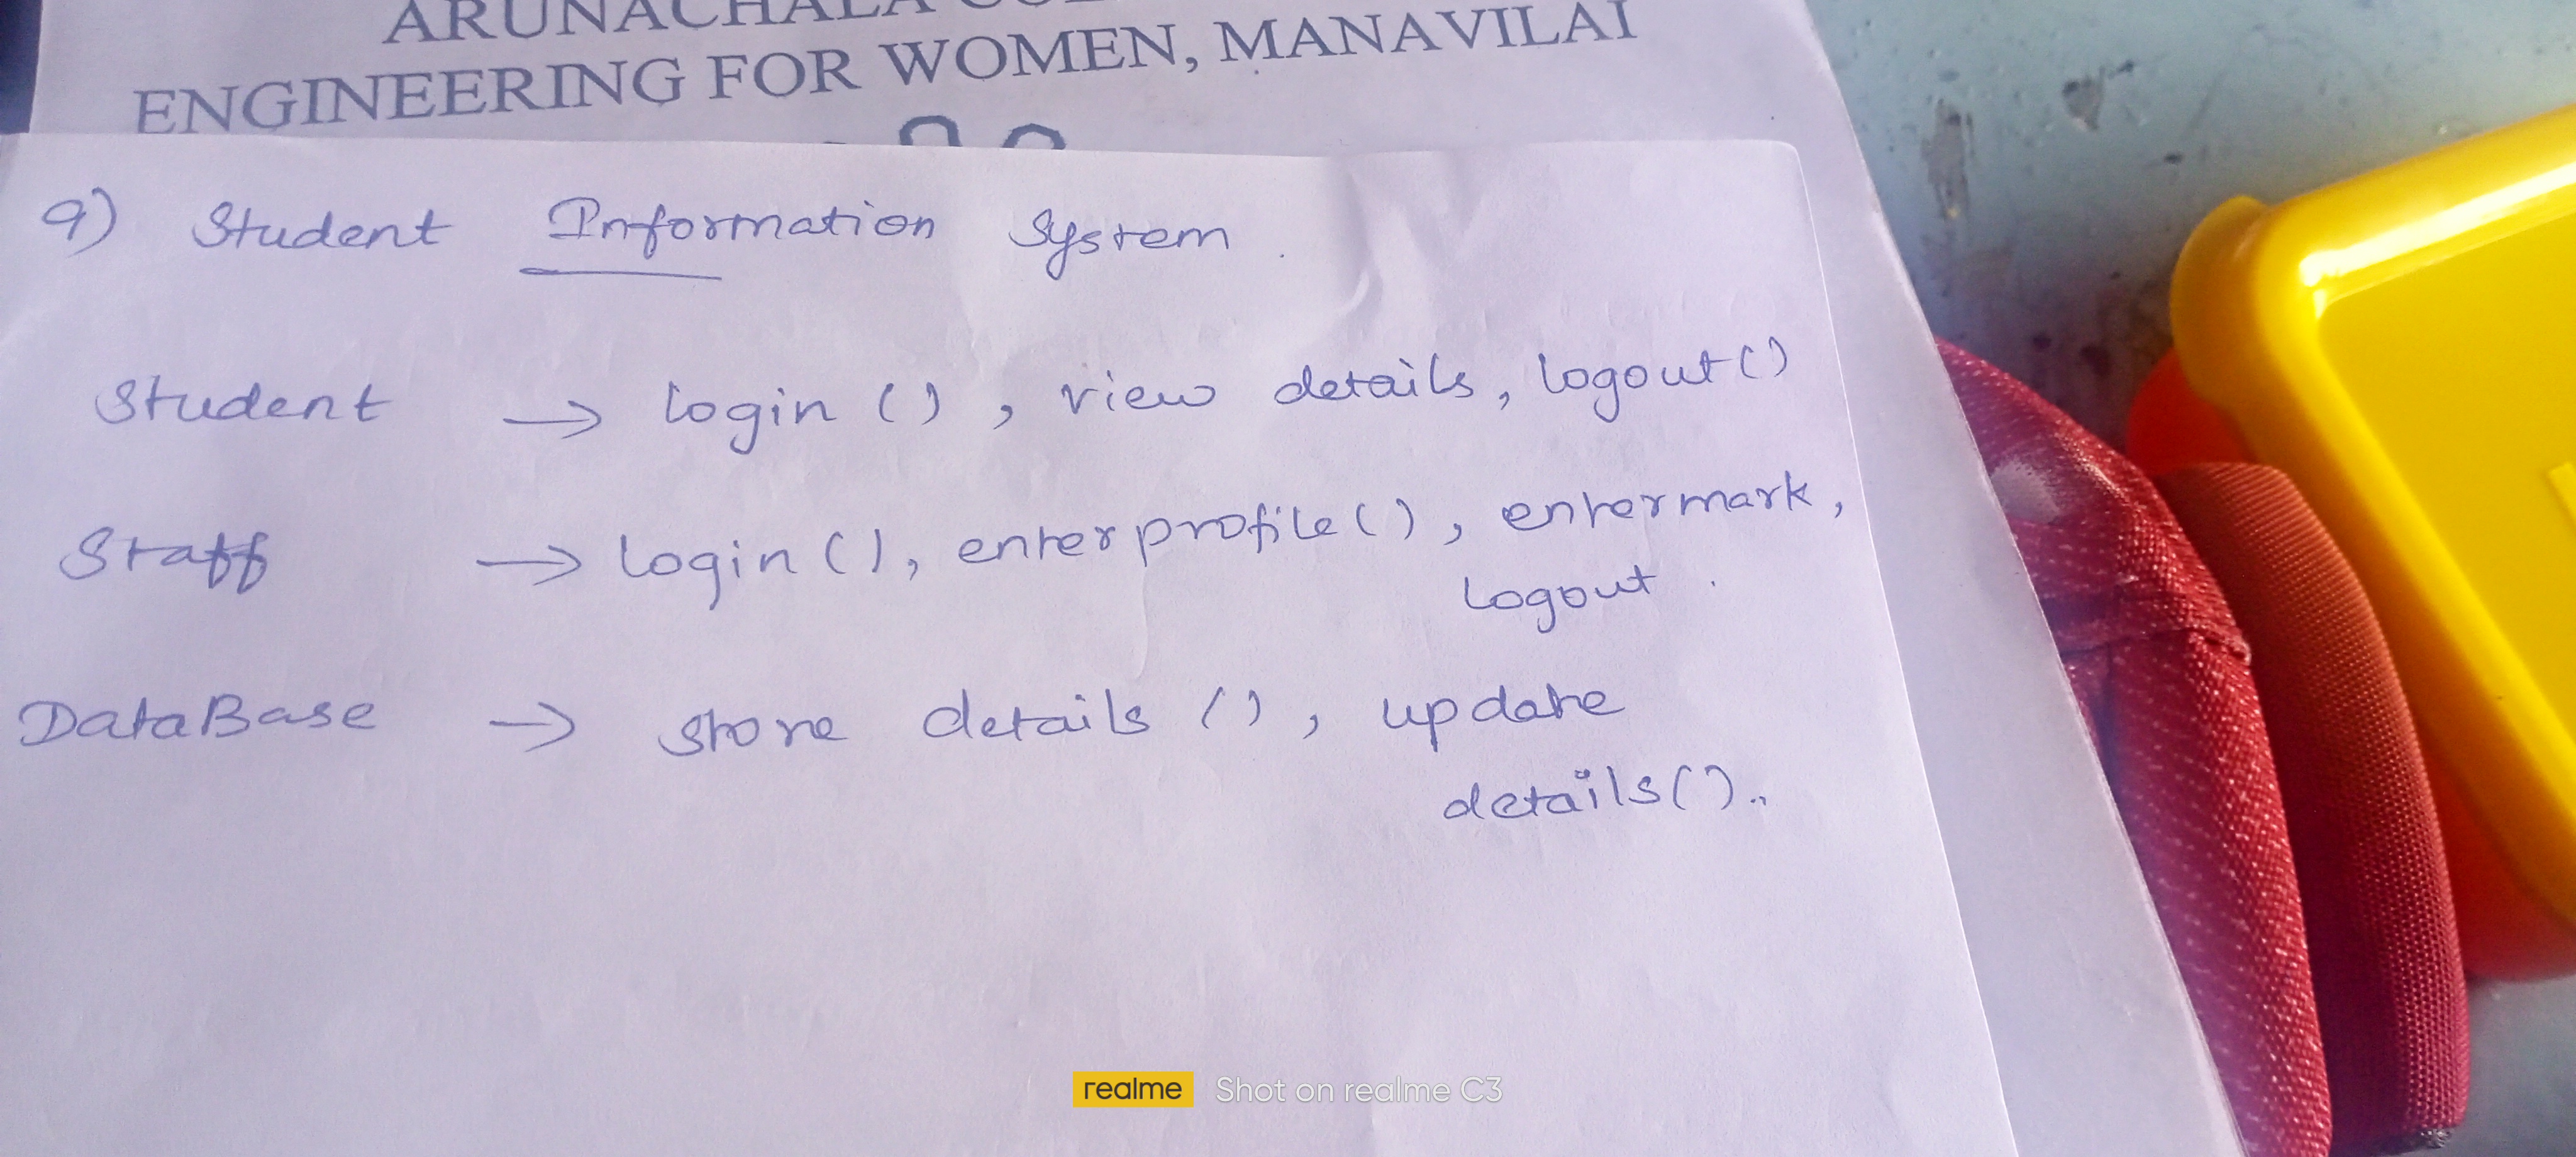 ARUNACHALA
ENGINEERING FOR WOMEN, MANAVILAI
9) Student Information System.
Student → login (), view details, logout()
Staff → login(), enterprofile(), entermark,
logout.
DataBase → store details (), update
details()..
realme Shot on realme C3